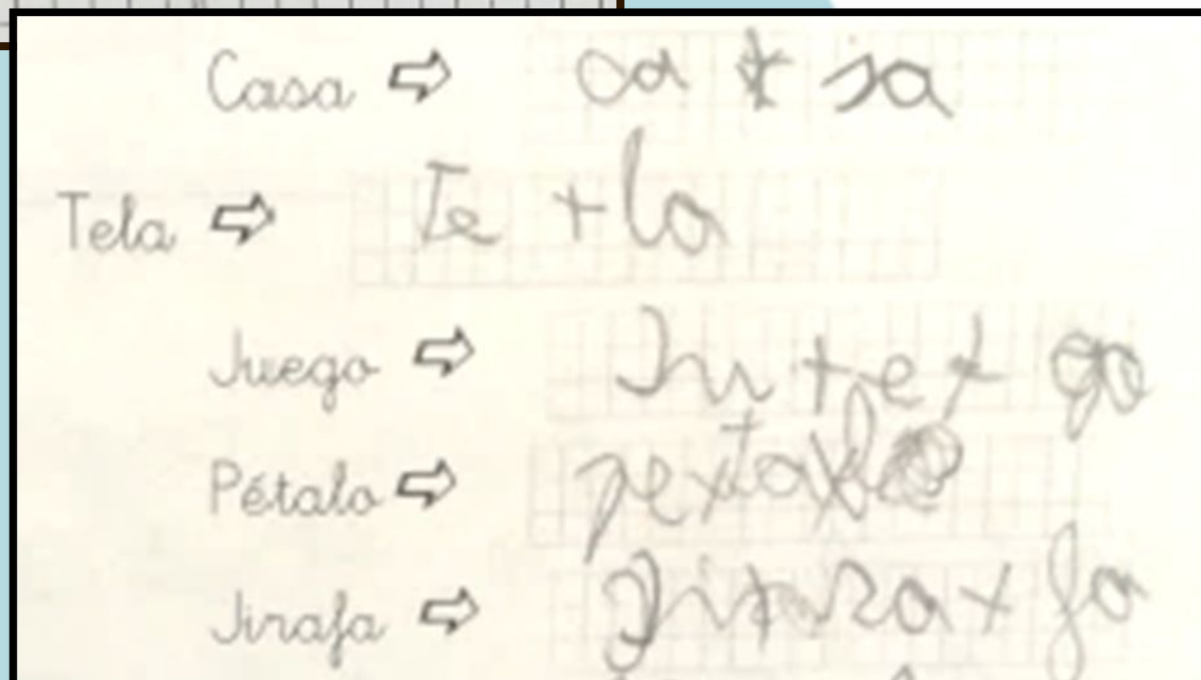 Casa ⇨ ca + sa
Tela ⇨ Te + la
Juego ⇨ Ju + e + go
Pétalo ⇨ pe x ta x lo
Jirafa ⇨ Ji + ra x fa